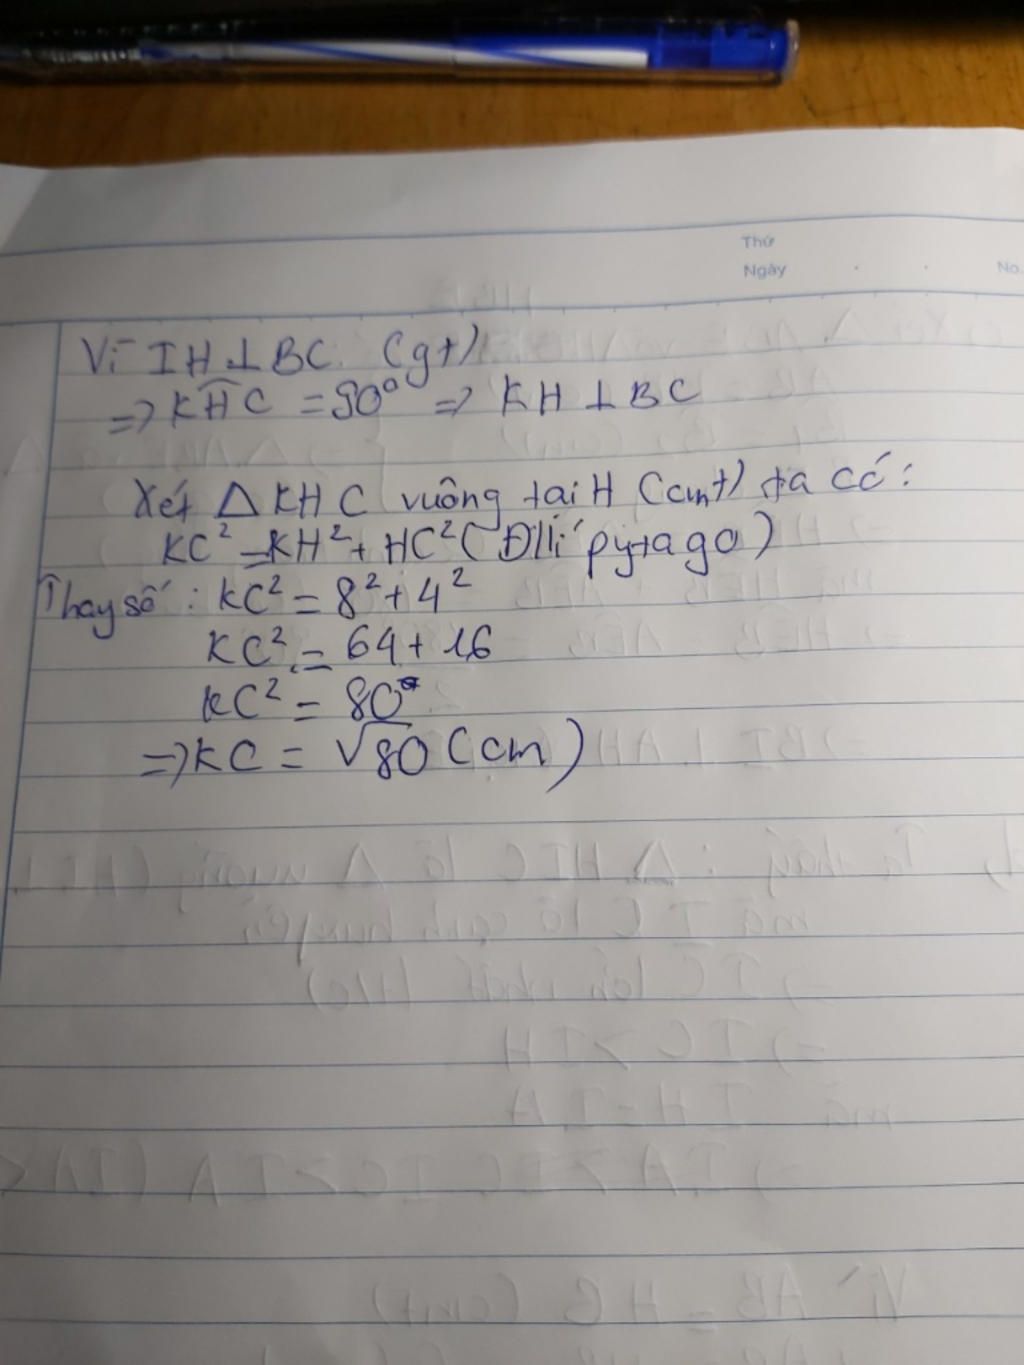 Thứ
Ngày No.
Vì IH ⊥ BC. (gt)
=> KĤC = 90° => KH ⊥ BC
Xét Δ KHC vuông tại H (cmt) ta có:
KC² = KH² + HC² (Đlí pytago)
Thay số: KC² = 8² + 4²
KC² = 64 + 16
KC² = 80
=> KC = √80 (cm)